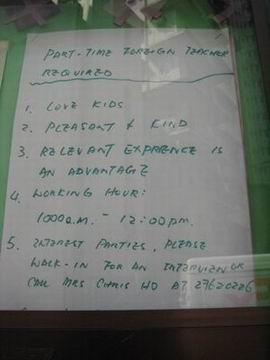 PART-TIME FOREIGN TEACHER
REQUIRED
1. LOVE KIDS
2. PLEASANT & KIND
3. RELEVANT EXPRIENCE IS
AN ADVANTAGE
4. WORKING HOUR:
1000a.m. - 12:00pm.
5. INTEREST PARTIES, PLEASE
WALK-IN FOR AN INTERVIEW OR
CALL MRS CHRIS HO AT 27620226